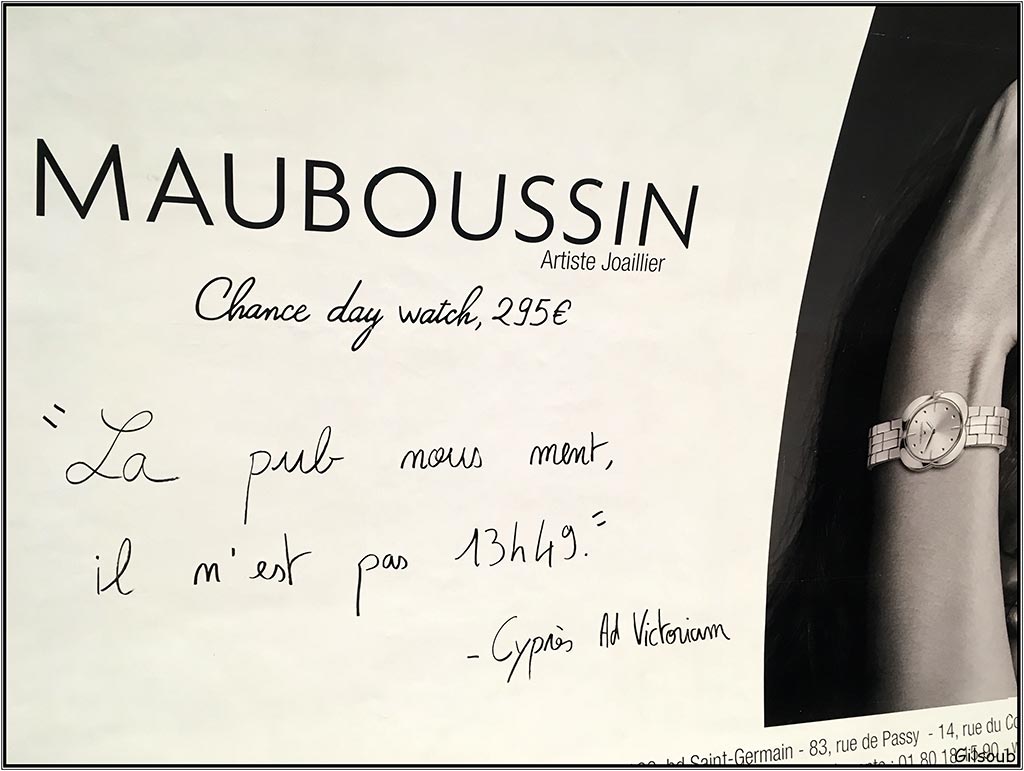 MAUBOUSSIN
Artiste Joaillier
Chance day watch, 295€
"La pub nous ment,
il n'est pas 13h49."
- Cyprès Ad Victoriam
bd Saint-Germain - 83, rue de Passy - 14, rue du
: 01 80 18 15 90
Gilsoub